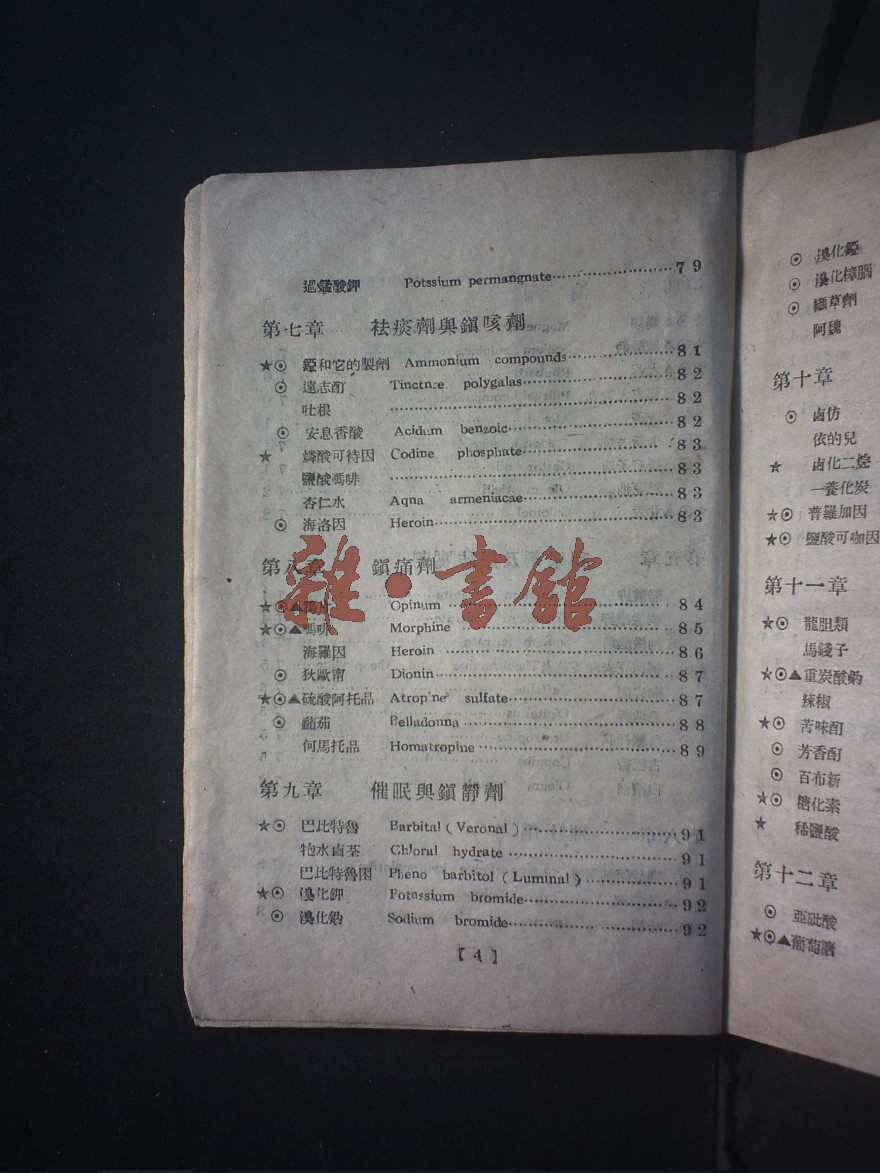 過錳酸鉀 Potssium permangnate 79
第七章 祛痰劑與鎭咳劑
★⊙ 錏和它的製劑 Ammonium compounds 81
⊙ 遠志酊 Tinctnre polygalas 82
吐根 82
⊙ 安息香酸 Acidum benzoic 82
★ 燐酸可待因 Codine phosphate 83
鹽酸嗎啡 83
杏仁水 Aqna armeniacae 83
⊙ 海洛因 Heroin 83
第八章 鎭痛劑
★⊙▲鴉片 Opinum 84
★⊙▲嗎啡 Morphine 85
海羅因 Heroin 86
⊙ 狄歐甯 Dionin 87
★⊙▲硫酸阿托品 Atropine sulfate 87
⊙ 茄 Belladonna 88
何馬托品 Homatropine 89
第九章 催眠與鎭靜劑
★⊙ 巴比特魯 Barbital (Veronal) 91
水卤荃 Chloral hydrate 91
巴比特魯困 Pheno barbitol (Luminal) 91
★⊙ 溴化鉀 Potassium bromide 92
⊙ 溴化鈉 Sodium bromide 92
【4】
雜·書館
⊙ 溴化錏
⊙ 溴化樟腦
⊙ 纈草劑
阿魏
第十章
⊙ 卤仿
依的兒
★ 卤化二烷
一養化炭
★⊙ 普羅加因
★⊙ 鹽酸可咖因
第十一章
★⊙ 龍胆類
馬錢子
★⊙▲重炭酸鈉
辣椒
★⊙ 苦味酊
⊙ 芳香酊
⊙ 百布新
★⊙ 糖化素
★ 稀鹽酸
第十二章
⊙ 亞砒酸
★⊙▲葡萄糖